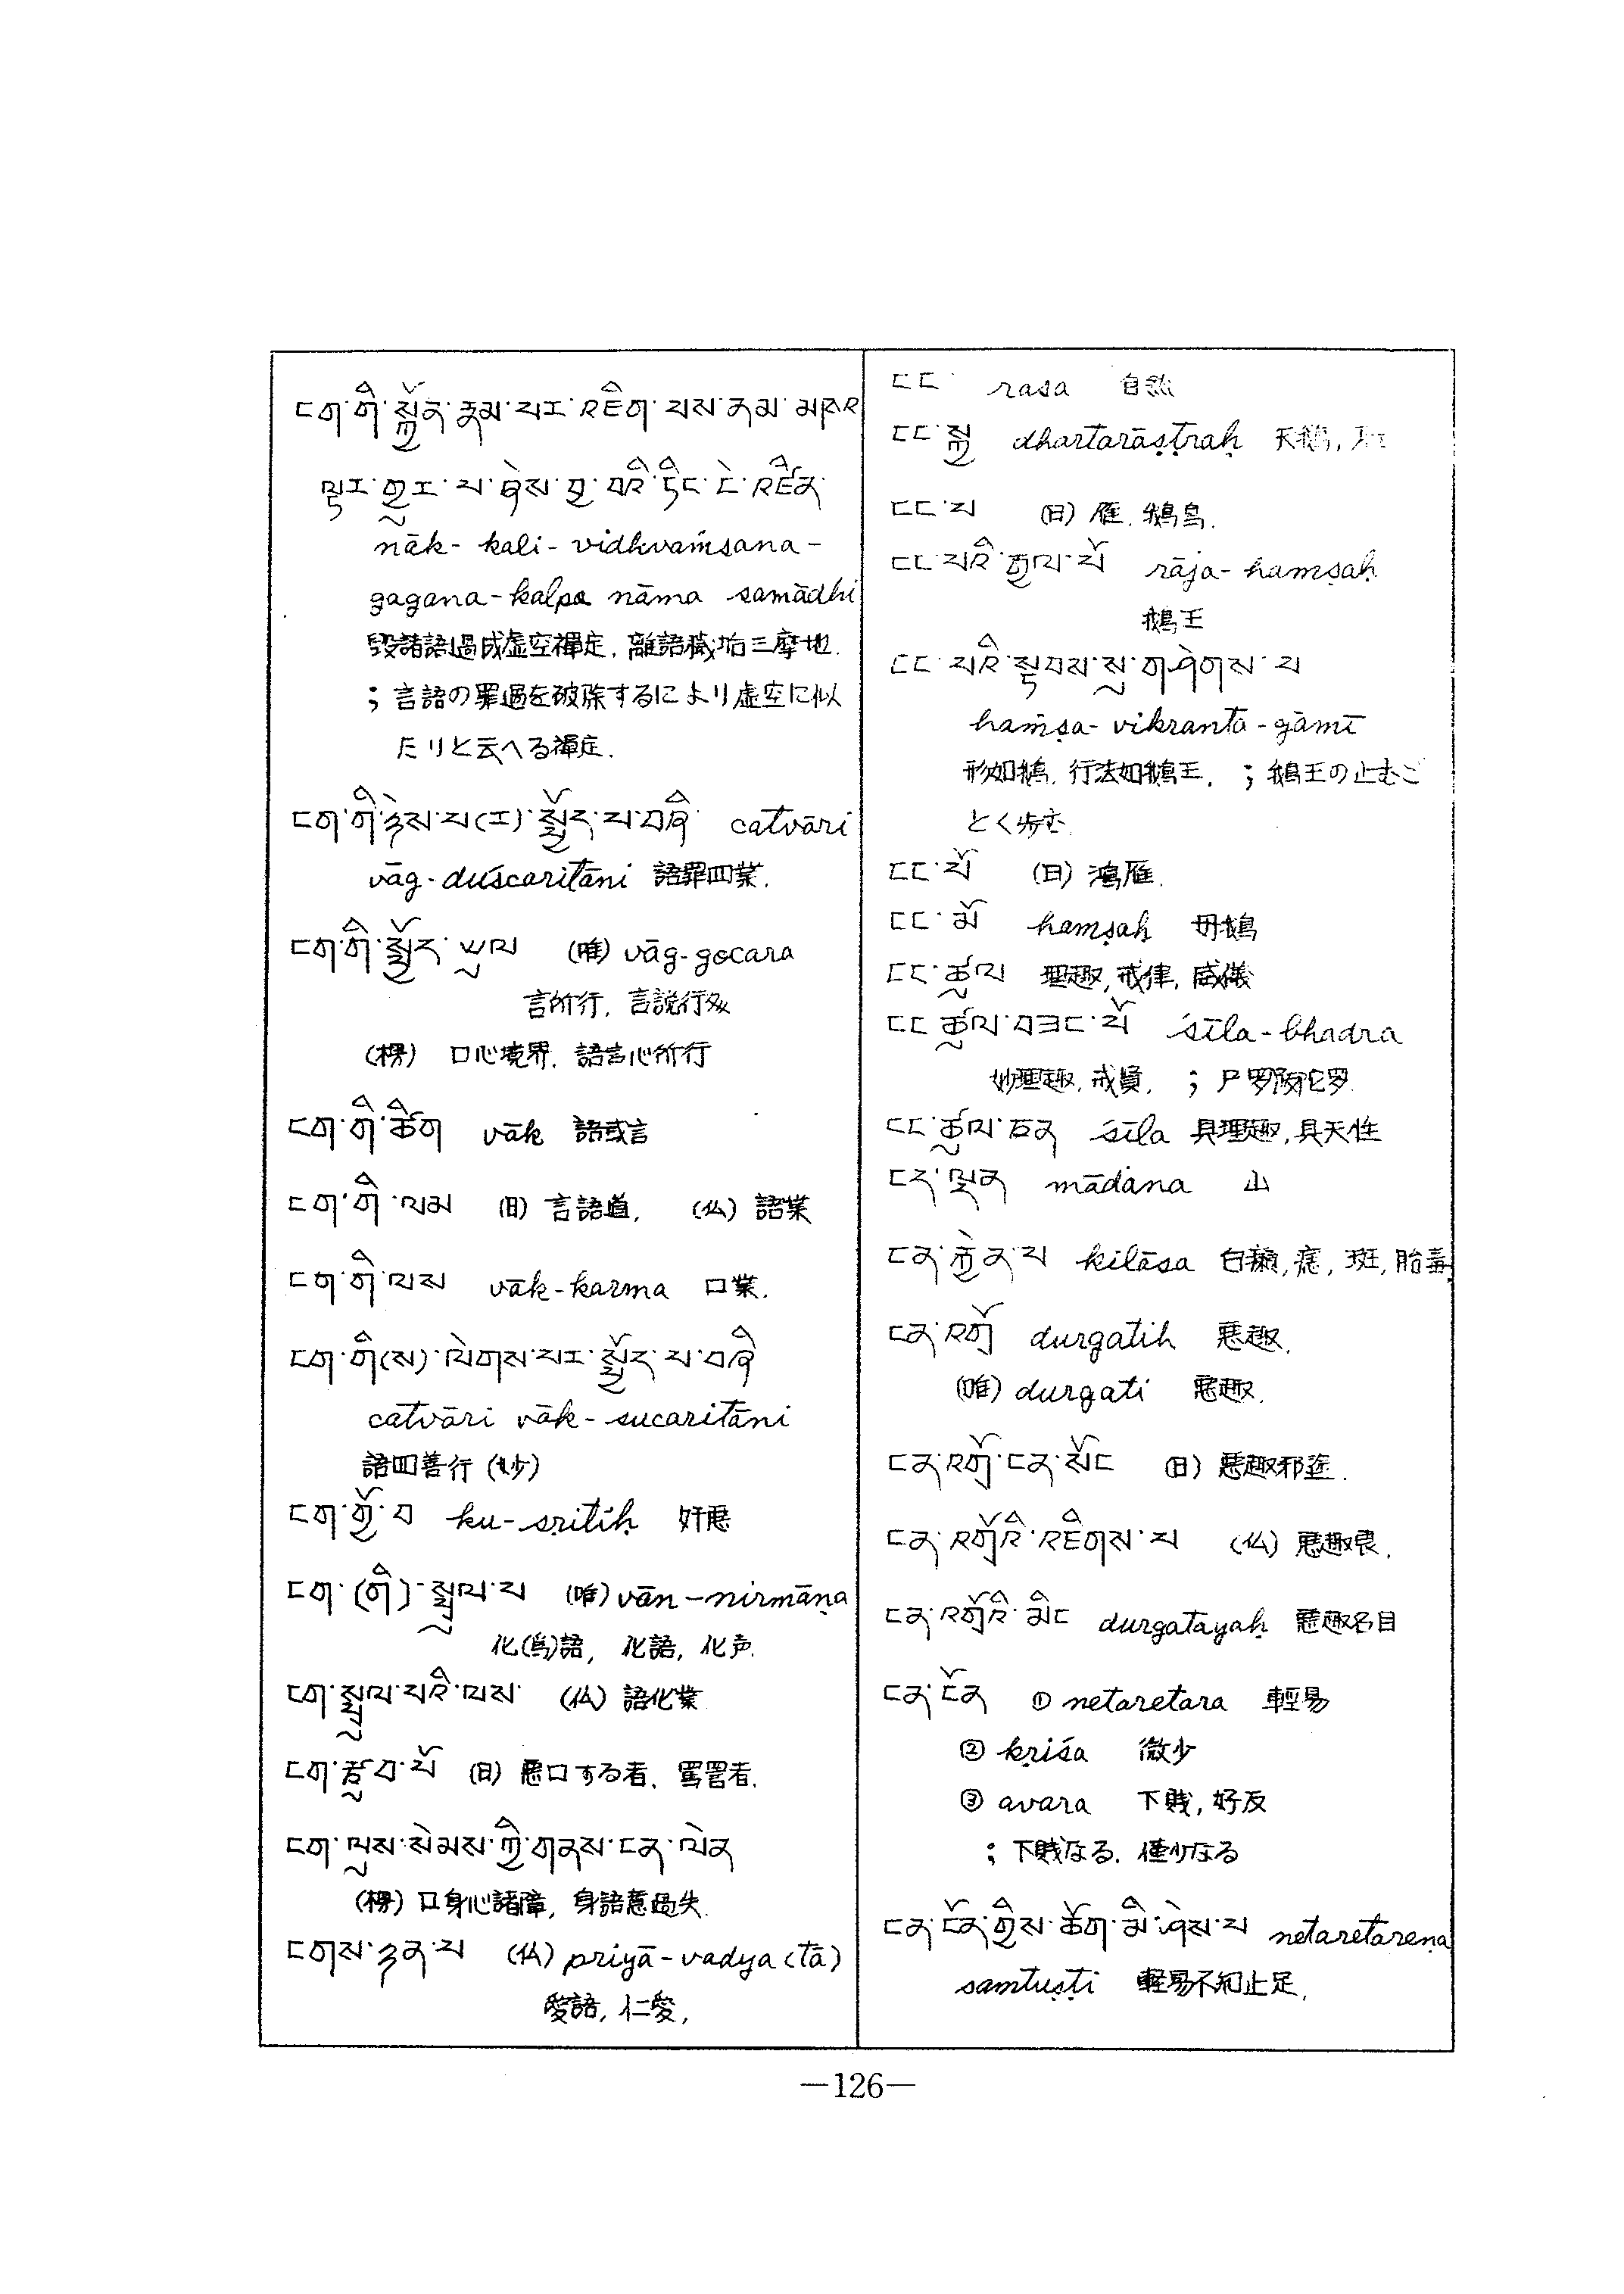 ངག་གི་སྐྱོན་རྣམ་པར་འཇིག་པས་ནམ་མཁའ
ལྟར་གྱུར་པ་ཞེས་བྱ་བའི་ཏིང་ངེ་འཛིན་
nāk- kali - vidhvaṁsana -
gagana - kalpa nāma samādhi
毀諸語過成虚空禪定, 離語穢垢三摩地.
; 言語の罪過を破除するにより虚空に似
たりと云へる禪定.
ངག་གི་ཉེས་པ(ར)་སྤྱོད་པ་བཞི་ catvāri
vāg - duścaritāni 語罪四業.
ངག་གི་སྤྱོད་ཡུལ (唯) vāg- gocara
言所行, 言説行处
(楞) 口心境界, 語言心所行
ངག་གི་ཚིག vāk 語或言
ངག་གི་ལམ (日) 言語道, (仏) 語業
ངག་གི་ལས vāk - karma 口業.
ངག་གི(ས)་ལེགས་པར་སྤྱོད་པ་བཞི
catvāri vāk - sucaritāni
語四善行 (妙)
ངག་གྱོ་བ ku - sṛitiḥ 奸悪
ངག་(གི)་སྤྲུལ་པ (唯) vān - nirmāṇa
化(爲)語, 化語, 化声.
ངག་སྤྲུལ་པའི་ལས་ (仏) 語化業
ངག་རྩུབ་པོ (日) 悪口する者, 罵詈者.
ངག་ལུས་སེམས་ཀྱི་གནས་ངན་ལེན
(楞) 口身心諸障, 身語意過失.
ངགས་ཉན་པ (仏) priyā - vadya (tā)
愛語, 仁愛,
ངང་ rasa 自然
ངང་སྐྱ dhartarāṣṭraḥ 天鵝,
ངང་པ (日) 雁, 鵝鳥.
ངང་པའི་རྒྱལ་པོ rāja - hamsaḥ
鵝王
ངང་པའི་སྟབས་སུ་གཤེགས་པ
haṁsa - vikranta - gāmī
形如鵝, 行法如鵝王, ; 鵝王の止むご
とく歩む
ངང་པོ (日) 鴻雁.
ངང་མོ hamsaḥ 母鵝
ངང་ཚུལ 理趣, 戒律, 威儀
ངང་ཚུལ་བཟང་པོ śīla - bhadra
妙理趣, 戒賢, ; 尸罗跋陀罗.
ངང་ཚུལ་ཅན śīla 具理趣, 具天性
ངད་ལྡན mādana 山
ངན་ཀྱེན་པ kilāsa 白癩, 痣, 斑, 胎毒
ངན་འགྲོ durgatih 悪趣.
(唯) durgati 悪趣.
ངན་འགྲོ་ངན་སོང (日) 悪趣邪途.
ངན་འགྲོའི་འཇིགས་པ (仏) 悪趣畏.
ངན་འགྲོའི་མིང durgatayaḥ 悪趣名目
ངན་ངོན ① netaretara 軽易
② kṛiśa 微少
③ avara 下賎, 好反
; 下賎なる, 僅少なる
ངན་ངོན་གྱིས་ཆོག་མི་ཤེས་པ netaretareṇa
samtuṣṭi 軽易不知止足,
—126—